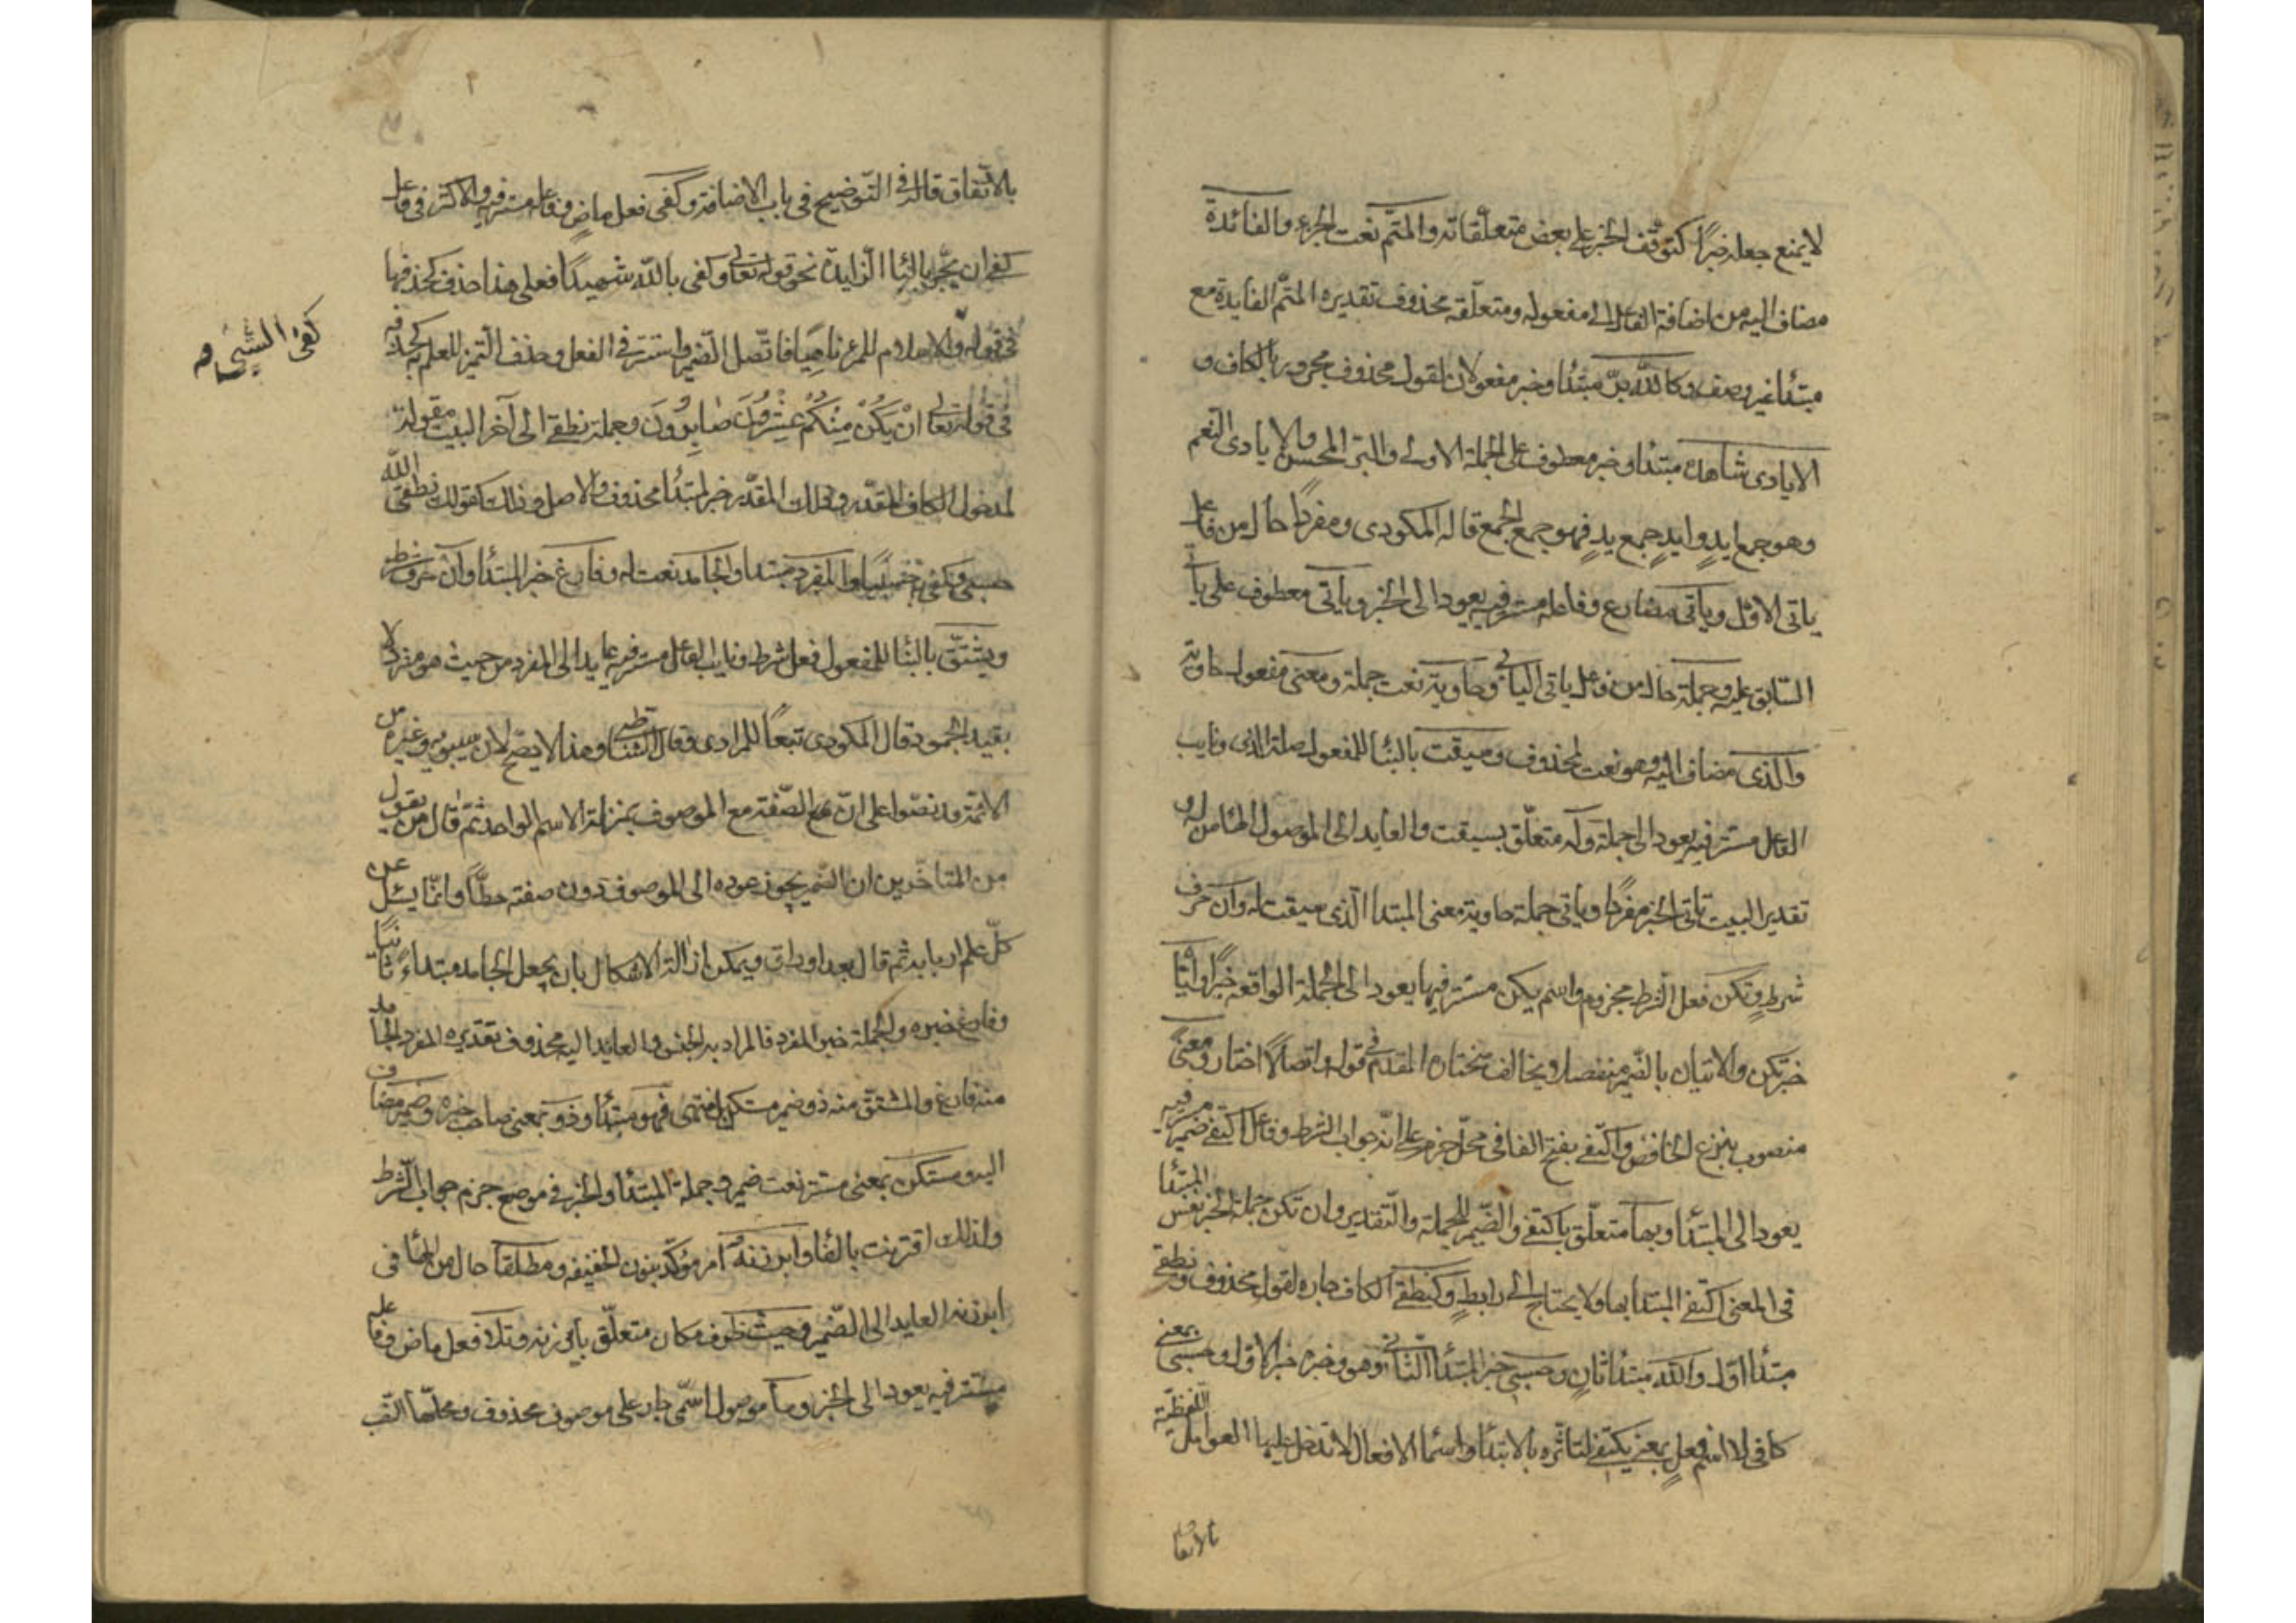 لا يمنع جعله خبرًا كتوقف الخبر على بعض متعلقاته والمتم نعت الجزء والفائدة
مضاف اليه من اضافة الفاعل الى مفعوله ومتعلقه محذوف تقديره المتم الفايدة مع
مبتدأ غير وصف وكالله برّ مبتدأ وخبر مفعولان لقول محذوف مجرور بالكاف و
الايادى شاهده مبتدأ وخبر معطوف على الجملة الاولى والبر المحسن والايادى النعم
وهو جمع ايدٍ وايدٍ جمع يدٍ فهو جمع الجمع قاله المكودى ومفردًا حال من فاعل
ياتى الاوّل وياتى مضارع وفاعله مستتر فيه يعود الى الخبر وياتى معطوف على ياتى
السّابق عليه وجملة حال من فاعل ياتى الثانى وحاوية نعت جملة ومعنى مفعول حاوية
والّذى مضاف اليه وهو نعت لمحذوف وسيقت بالبنا للمفعول صلة الذى ونايب
الفاعل مستتر فيه يعود الى جملة وله متعلّق بسيقت والعايد الى الموصول الها من له و
تقدير البيت ياتى الخبر مفردًا وياتى جملة حاوية معنى المبتدا الّذى سيقت له وان حرف
شرطٍ وتكن فعل الشرط مجزوم واسم يكن مستتر فيها يعود الى الجملة الواقعة خبرًا وايّا
خبر تكن والاتيان بالضّمير منفصلا ويخالف مختاره المقدم فى قوله واتصالاً اختار ومعنًى
منصوب بنزع الخافض واكتفى بفتح الفا فى محلّ جزم على انّه جواب الشرط وفاعل اكتفى ضمير مستتر فيه
يعود الى المبتدأ وبها متعلّق باكتفى والضّمير للجملة والتّقدير وان تكن جملة الخبر نفس المبتدأ
فى المعنى اكتفى المبتدا بها ولا يحتاج الى رابطٍ وكنطقى الكاف جاره لقول محذوف ونطقى
مبتدأ اوّل والله مبتدأ ثانٍ وحسبى خبر المبتدأ الثانى وهو وخبره خبر الاوّل وحسبى بمعنى
كافى لا اسم فعلٍ بمعنى يكتفى لتاثره بالابتدأ واسما الافعال لا تدخل عليها العوامل اللّفظيّة
بالاتفا
بالاتّفاق قاله فى التّوضيح فى باب الاضافة وكفى فعل ماضٍ وفاعله مستتر فيه والاكثر فى فاعل
كفى ان يجّر بالبا الزايدة نحو قوله تعالى وكفى بالله شهيدًا فعلى هذا حذف كحذفها
فى قوله والاسلام للمرء ناهيًا فاتّصل الضّمير واستتر فى الفعل وحذف التّميز للعلم به كحذفه
فى قوله تعالى انْ يَكُنْ مِنْكُمْ عِشْرُونَ صَابِرُونَ وجملة نطقى الى آخر البيت مقولة
لمدخول الكاف المقدّر وذلك المقدّر خبر لمبتدأ محذوف والاصل وذلك كقولك نطقى الله
حسبى وكفى به حسيبًا والمفرد مبتدا والجامد نعت له وفارغ خبر المبتدأ وان حرف شرط
ويشتقّ بالبنا للمفعول فعل شرط ونايب الفاعل مستتر فيه عايد الى المفرد من حيث هو مفرد لا
بقيد الجمود قال المكودى تبعًا للمرادى وقال الشّاطبى وهذا لا يصّح لان سيبويه وغيره من
الائمة قد نصّوا على انّ الصّفة مع الموصوف بمنزلة الاسم الواحد ثم قال من يقول
من المتاخّرين ان الضّمير يجوز عوده الى الموصوف دون صفته خطّأ وانّما يسئل عن
كلّ علم اربابه ثم قال بعد اوراق ويمكن ازالة الاشكال بان يجعل الجامد مبتداءً ثانيًا
وفارغ خبره والجملة خبر المفرد فالمراد به الجنس والعايد اليه محذوف تقديره المفرد الجامد
منه فارغ والمشتق منه ذو ضمير مستكن انتهى فهو مبتدأ وذو بمعنى صاحب خبره وضمير مضاف
اليه ومستكن بمعنى مستتر نعت ضمير وجملة المبتدأ والخبر فى موضع جزم جواب الشّرط
ولذلك اقترنت بالفا وابرزنه امر مؤكّد بنون الخفيفه ومطلقا حال من الها فى
ابرزنه العايد الى الضّمير وحيث ظرف مكان متعلّق بابرزنه وتلا فعل ماض وفاعله
مستتر فيه يعود الى الخبر وما موصول اسمّى جار على موصوف محذوف ومحلّها النّصب
كفى الشيب